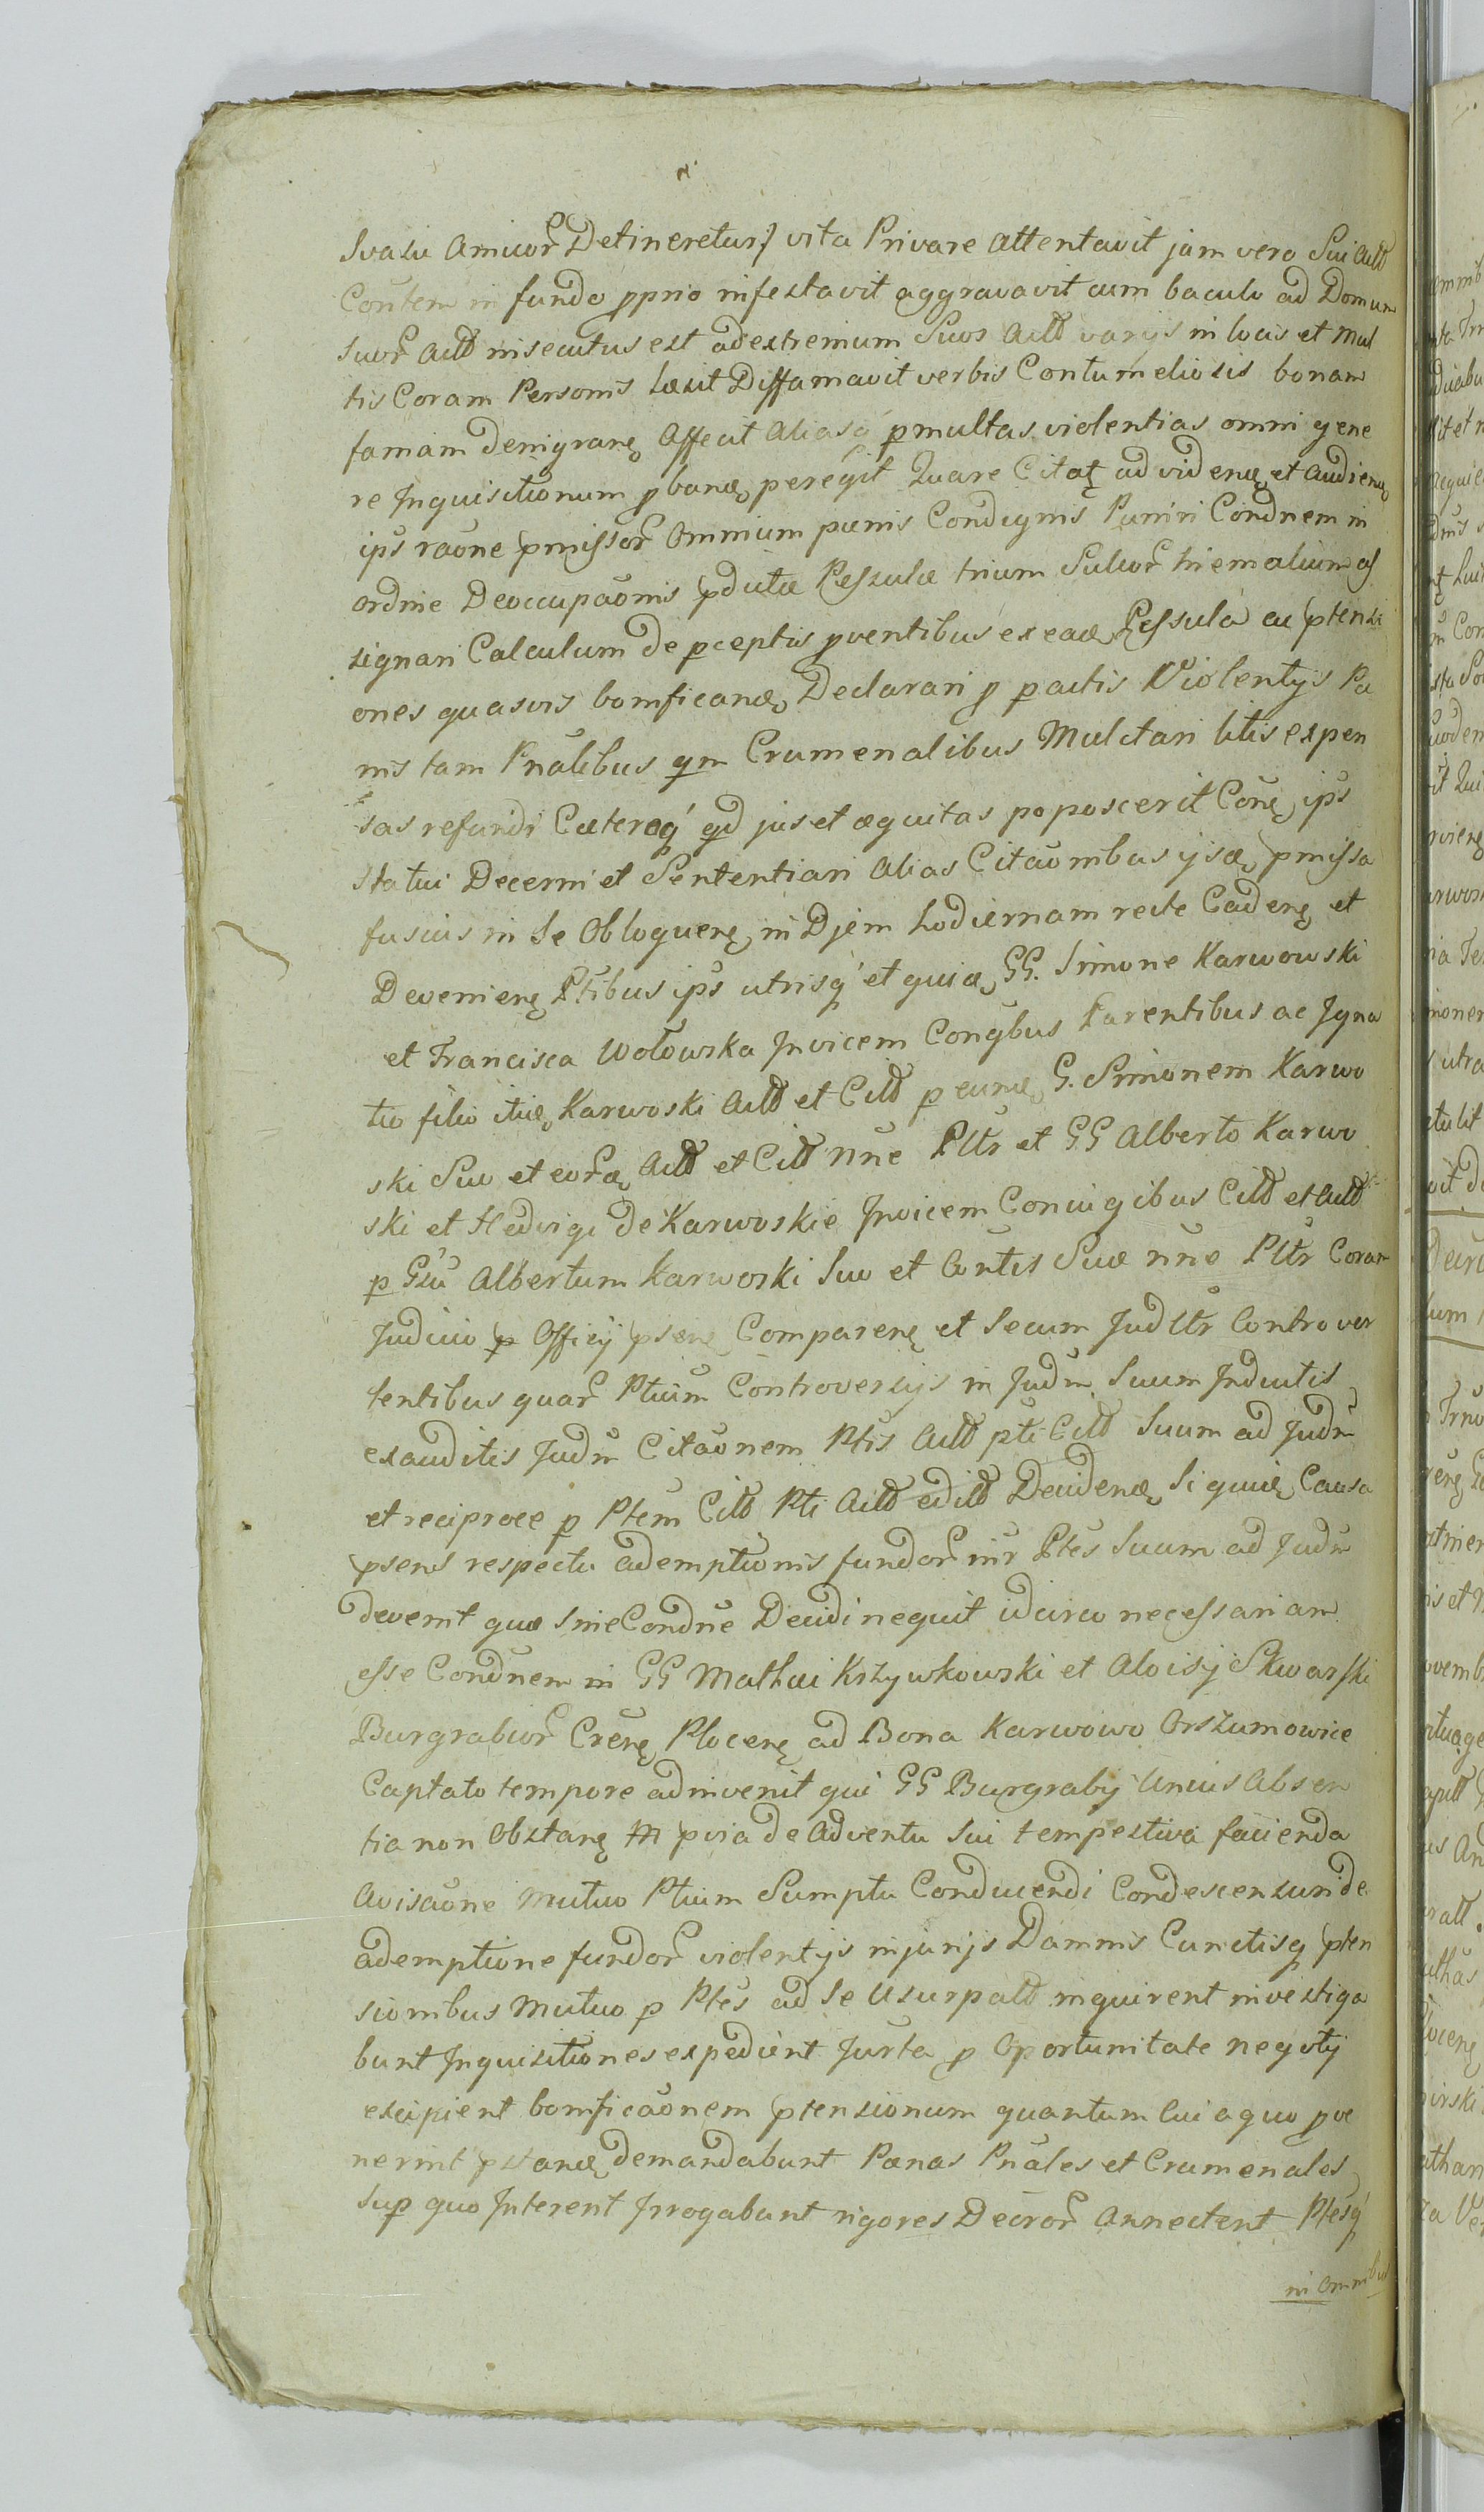 Svasu Amicor Detineretur) vita Privare attentavit jam vero Sui Actt
Contem in fundo pprio infestavit aggravavit cum baculo ad Domum
Suor Actt insecutus est ad extremum Suos Actt varijs in locis et mul
tis Coram Personis Læsit Diffamavit verbis Contumeliosis bonam
famam denigran Affecit Aliasq pmultas violentias omni gene
re Inquisitionum pban peregit Quare Citat ad viden et audien
ips raone pmissor Omnium pænis Condignis Puniri Condnem in
ordine Deoccupaonis pdictæ Pessulæ trium Sulcor hiemalium as
signari Calculum de pceptis pventibus ex ead Pessula ac ptensi
ones quasvis bonifican Declarari p pactis Violentijs Pæ
nis tam Pnalibus qm Crumenalibus Mulctari litis expen
sas refundi Cæteraq qd jus et æquitas poposcerit Con ips
statui Decerni et Sententiari Alias Citaonibus ijsd pmissa
fusius in Se Obloquen in Diem hodiernam recte Caden et
Devenien Ptibus ips utrisq et quid GG. Simone Karwowski
et Francisca Wołowska Invicem Congbus Parentibus ac Igna
tio filio itid Karwoski Actt et Citt p eund G. Simonem Karwo
ski Suo et eord Actt et Citt nne Pltr et GG Alberto Karwo
ski et Hedvigi de Karwoskie Invicem Coniugibus Citt et Actt
p Gsu Albertum Karwoski Suo et Contis Suæ nne Pltr Coram
Judicio p Officij psen Comparen et Secum Judltr Controver
tentibus quar Ptium Controversijs in Judm Suum Inductis
exauditis Judm Citaonem Ptis Actt pti Citt Suum ad Judm
et reciproce p Ptem Citt Pti Actt editt Deciden Siquid Causa
psens respectu ademptionis fundor intr Ptes Suum ad Judm
devenit quæ Sine Condne Decidi nequit idcirco necessariam
esse Condnem in GG Mathæi Krzywkowski et Aloisij Skwarski
Burgrabior Cren Plocen ad Bona Karwowo Orszumowice
Captato tempore adinvenit qui GG Burgrabij Unius Absen
tia non Obstan pvia de Adventu Sui tempestiva facienda
Avisaone mutuo Ptium Sumptu Conducendi Condescensuri de
ademptione fundor violentijs injurijs Damnis Cunctisq pten
sionibus mutuo p Ptes ad Se Usurpatt inquirent investiga
bunt Inquisitiones expedient Jurta p Oportunitate negotij
excipient bonificaonem ptensionum quantum Cui a quo pve
nerint pstand demandabunt Pænas Pnales et Crumenales
Sup quo Interent Irrogabunt rigores Decror Annectent Ptesq
in Omnibus